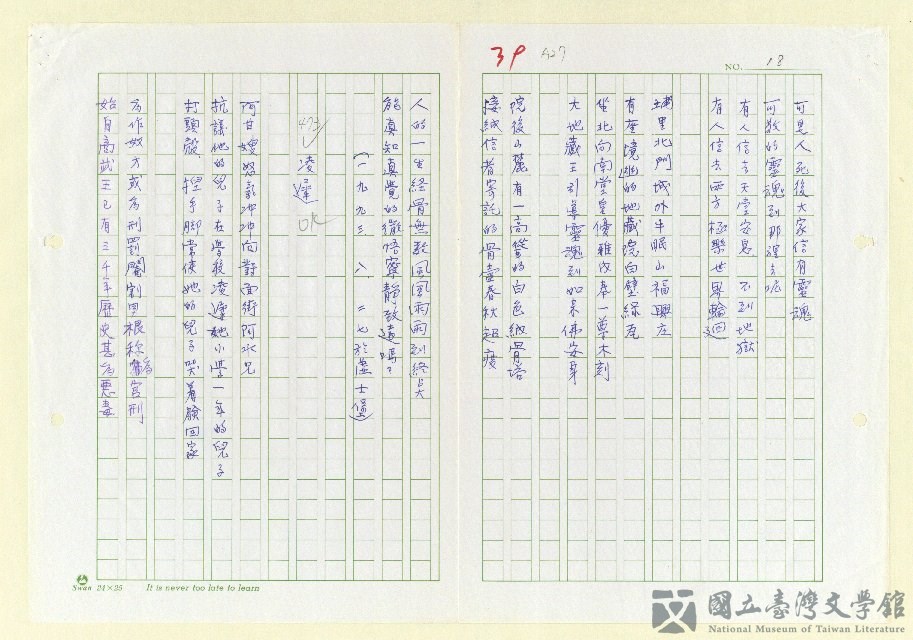 39
427
NO. 18
可是人死後大家信有靈魂
可敬的靈魂到那裡去呢
有人信去天堂安息 不到地獄
有人信去西方極樂世界輪迴
埔里北門城外牛眠山福興庄
有座境幽的地藏院白壁綠瓦
坐北向南堂皇優雅内奉一尊木刻
大地藏王引導靈魂到如来佛安身
院後山麓有一高聳的白色納骨塔
接納信者寄託的骨壺春秋超度
人的一生経骨無數風風雨雨到終点
能真知真覺的徹悟寧静致遠嗎?
(一九九三、八、二七於
473
凌遲
OK
阿甘嫂怒氣冲冲向對面街阿水兄
抗議他的兒子在學校凌遲她小學一年的兒子
打頭殼、捏手脚常使她的兒子哭着臉回家
古作奴才或為刑罰閹割男根称為宮刑
始自商武王已有三千年歷史甚為惡毒
Swan 24×25 It is never too late to learn
國立臺灣文學館
National Museum of Taiwan Literature